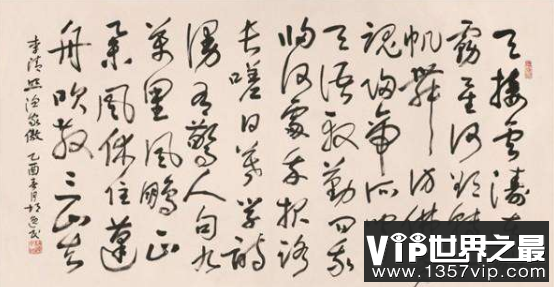 天接雲濤連
霧星河欲轉
帆舞仿佛
魂歸帝所
天語殷勤問我
歸何處我報路
長嗟日暮學詩
漫有驚人句九
萬里風鵬正
舉風休住蓬
舟吹取三山去
李清照漁家傲 乙酉春月
VIP世界之最
www.1357vip.com